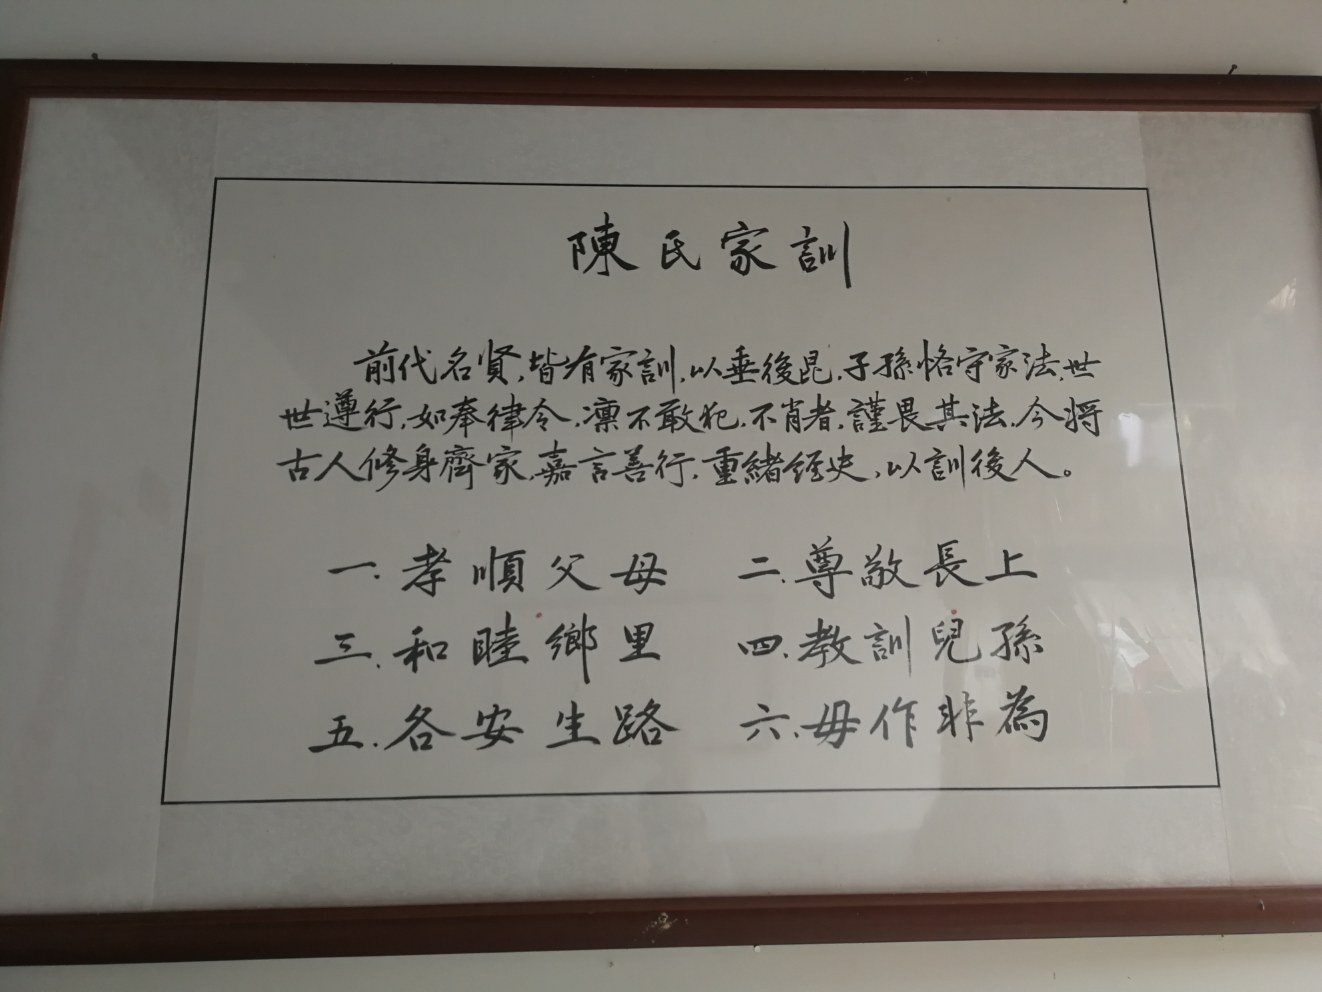 陳氏家訓
前代名賢,皆有家訓,以垂後昆,子孫恪守家法,世
世遵行,如奉律令,凛不敢犯,不肖者,謹畏其法,今將
古人修身齊家,嘉言善行,重緒經史,以訓後人。
一.孝順父母 二.尊敬長上
三.和睦鄉里 四.教訓兒孫
五.各安生路 六.毋作非為